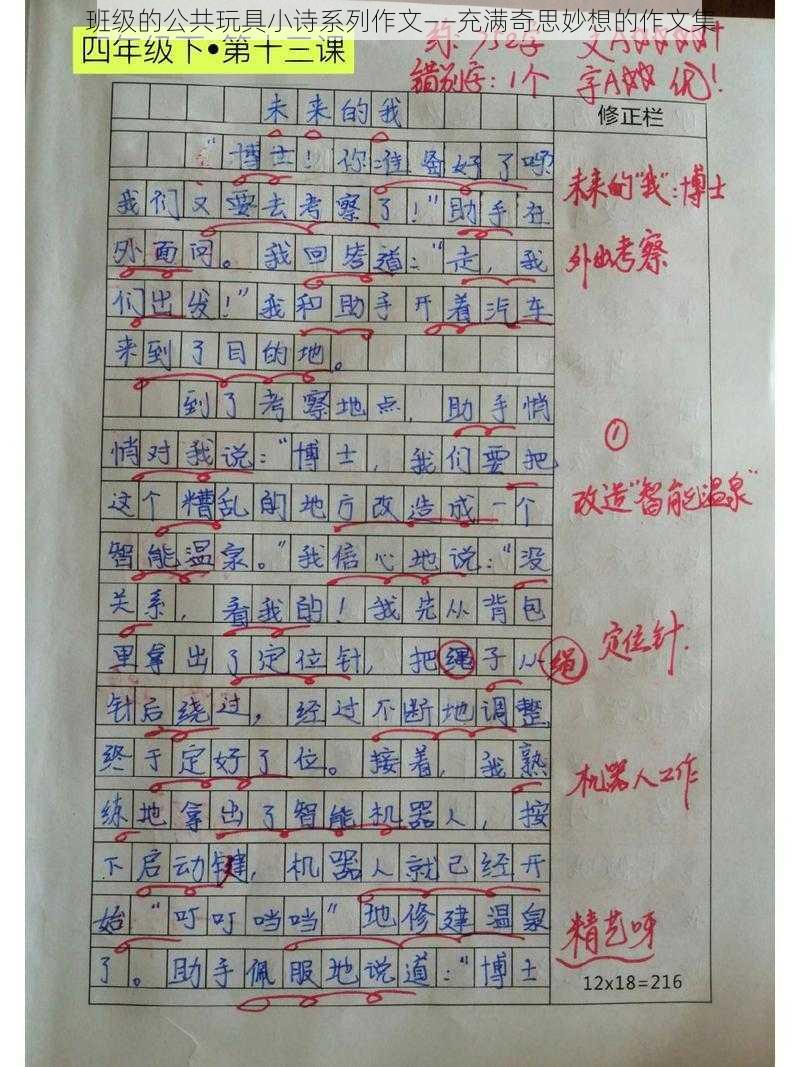 班级的公共玩具小诗系列作文——充满奇思妙想的作文集
四年级下•第十三课
练:752字 文A☆☆☆☆+
错别字:1个 字A☆☆ 优!
未来的我
修正栏
“博士!你准备好了呀?
我们又要去考察了!”助手在
外面问。我回答道:“走,我
们出发!”我和助手开着汽车
来到了目的地。
到了考察地点,助手悄
悄对我说:“博士,我们要把
这个糟乱的地方改造成一个
智能温泉。”我信心地说:“没
关系,看我的!我先从背包
里拿出了定位针,把绳子从
针后绕过,经过不断地调整
终于定好了位。接着,我熟
练地拿出了智能机器人,按
下启动键,机器人就已经开
始“叮叮当当”地修建温泉
了。助手佩服地说道:“博士
未来的“我”:博士
外出考察
①
改造“智能温泉”
绳
定位针.
机器人工作
精艺呀
12x18=216